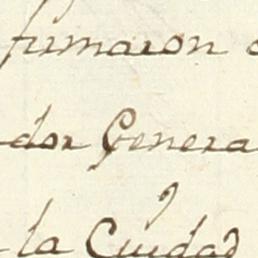 firmaron
dor Genera
la Ciudad